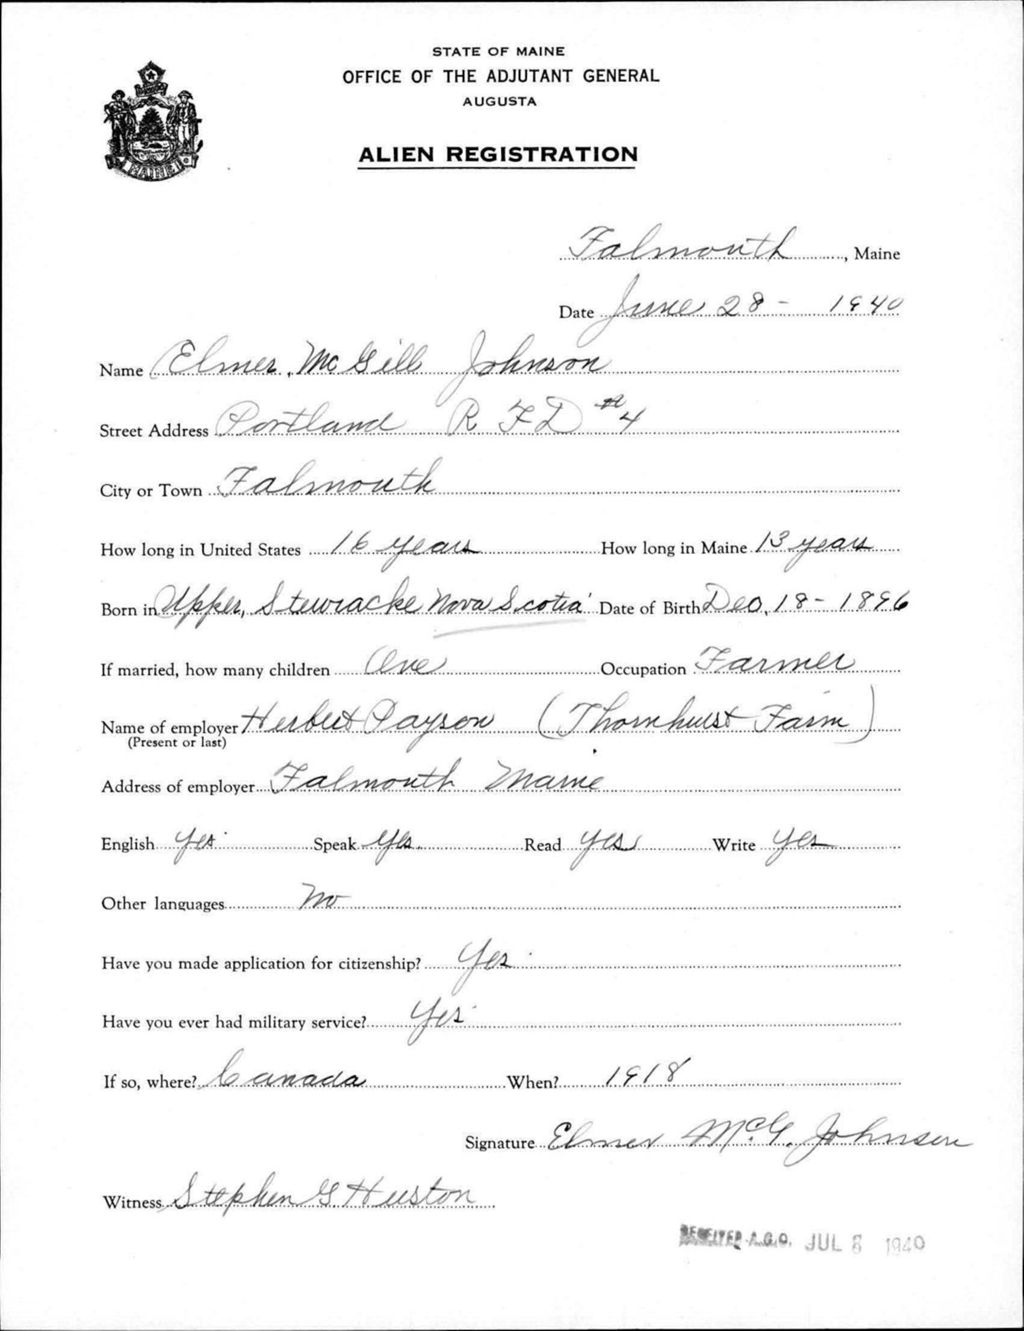 STATE OF MAINE
OFFICE OF THE ADJUTANT GENERAL
AUGUSTA
ALIEN REGISTRATION
MAINE
Falmouth, Maine
Date June 28 - 1940
Name Elmer McGill Johnson
Street Address Portland R F D #4
City or Town Falmouth
How long in United States 16 years How long in Maine 13 years
Born in Upper, Stewiacke Nova Scotia Date of Birth Dec, 18 - 1896
If married, how many children One Occupation Farmer
Name of employer Herbert Payson (Thornhurst Farm)
(Present or last)
Address of employer Falmouth Maine
English Yes Speak Yes Read Yes Write Yes
Other languages No
Have you made application for citizenship? Yes
Have you ever had military service? Yes
If so, where? Canada When? 1918
Signature Elmer McG. Johnson
Witness Stephen G. Huston
RECEIVED A.G.O. JUL 1940